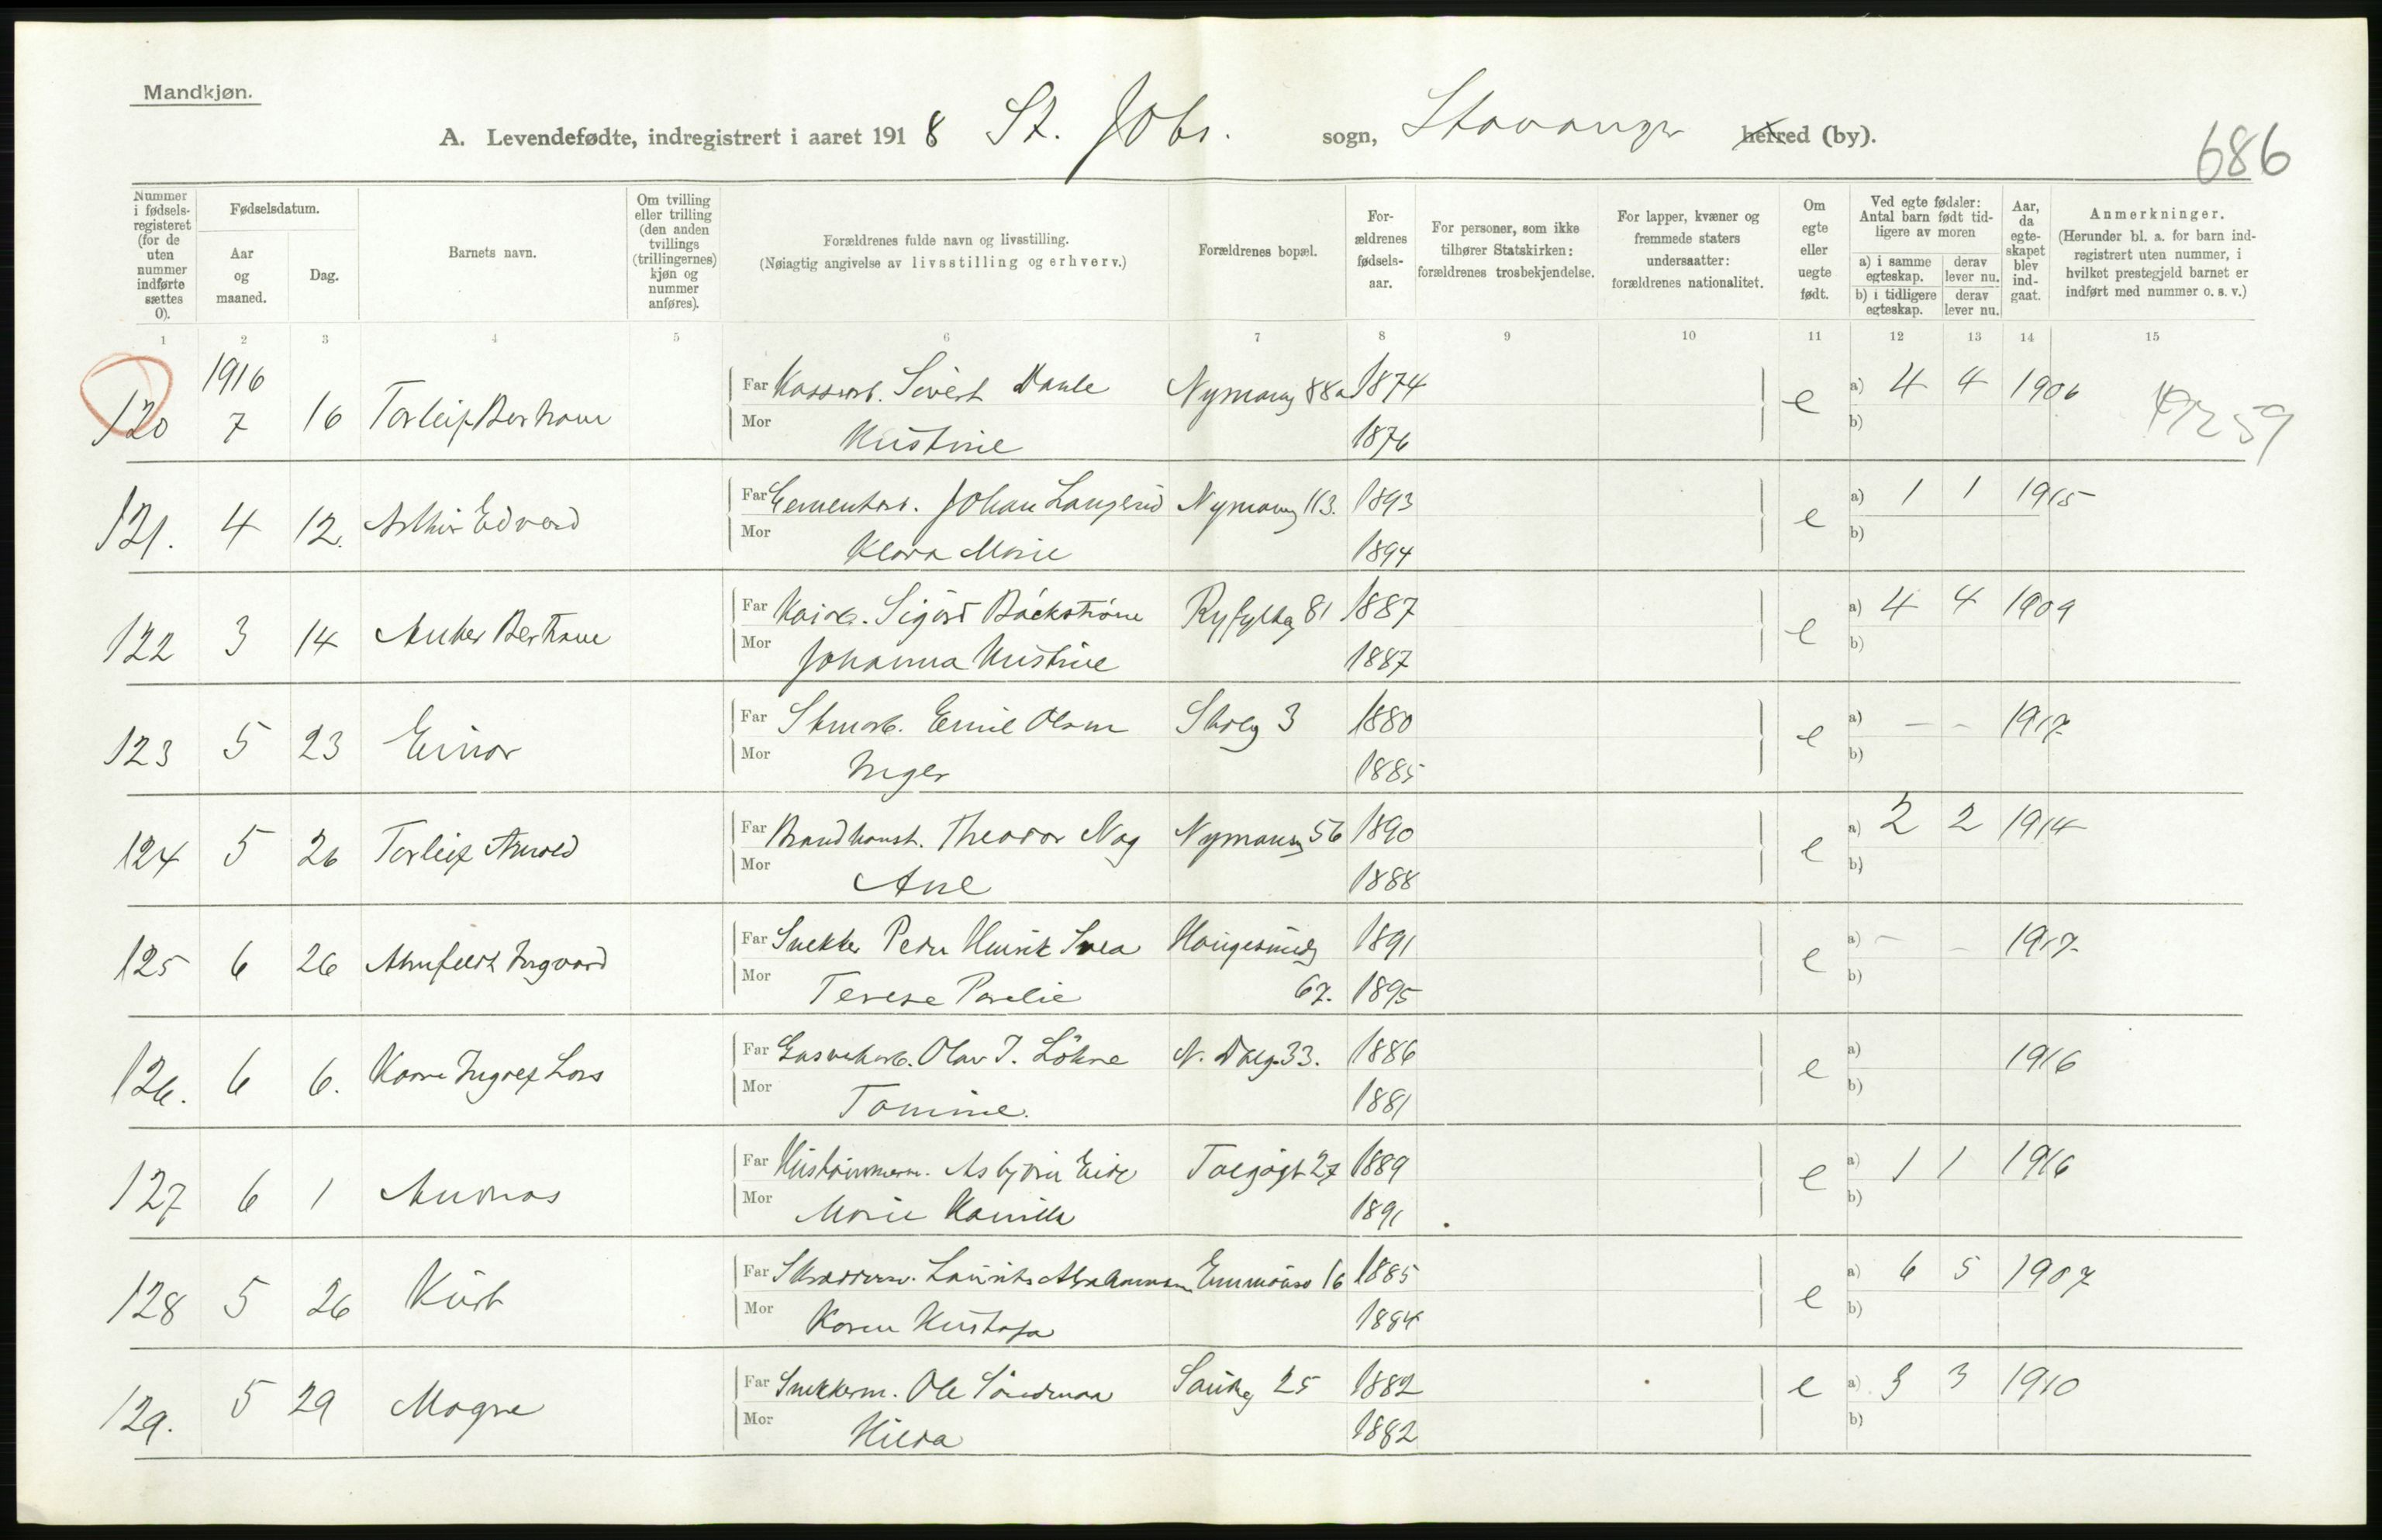 Mandkjøn.
A. Levendefødte, indregistrert i aaret 1918 St. Johs. sogn, Stavanger herred (by).
686
Nummer i fødselsregisteret (for de uten nummer indførte sættes 0).
Fødselsdatum.
Aar og maaned.
Dag.
Barnets navn.
Om tvilling eller trilling (den anden tvillings (trillingernes) kjøn og nummer anføres).
Forældrenes fulde navn og livsstilling.
(Nøiagtig angivelse av livsstilling og erhverv.)
Forældrenes bopæl.
Forældrenes fødselsaar.
For personer, som ikke tilhører Statskirken: forældrenes trosbekjendelse.
For lapper, kvæner og fremmede staters undersaatter: forældrenes nationalitet.
Om egte eller uegte født.
Ved egte fødsler: Antal barn født tidligere av moren
a) i samme egteskap.
derav lever nu.
b) i tidligere egteskap.
derav lever nu.
Aar, da egteskapet blev indgaat.
Anmerkninger.
(Herunder bl. a. for barn indregistrert uten nummer, i hvilket prestegjeld barnet er indført med nummer o. s. v.)
1 2 3 4 5 6 7 8 9 10 11 12 13 14 15
1916
120 7 16 Torleif Bertram Far Sivert Nymansg 88a 1874 e a) 4 4 1906
Mor Kristine 1876 b)
121. 4 12. Arthur Edvard Far Cementarb. Johan Nymansg 113. 1893 e a) 1 1 1915
Mor Klara Marie 1894 b)
122 3 14 Anker Bertram Far Sigurd Bäckström Ryfylkeg 81 1887 e a) 4 4 1909
Mor Johanna Kristine 1887 b)
123 5 23 Einar Far Emil Olsen 3 1880 e a) – – 1917
Mor Inger 1885 b)
124 5 26 Torleif Arnold Far Brandkonst. Theodor Nag Nymansg 56 1890 e a) 2 2 1914
Mor Ane 1888 b)
125 6 26 Ingvard Far Snekker Peder Henrik Svea Haugesundg 1891 e a) – – 1917
Mor Terese 67. 1895 b)
126. 6 6. Kaare Ingolf Lars Far Gasverkarb. Olav T. 33. 1886 e a) 1916
Mor Tomine. 1881 b)
127 6 1 Andreas Far Asbjørn Eide 27 1889 e a) 1 1 1916
Mor Marie Kamilla 1891 b)
128 5 26 Kurt Far Skræddersv. Laurits Abrahamsen 16 1885 e a) 6 5 1907
Mor Karen 1884 b)
129. 5 29 Magne Far Snekkerm. Ole 25 1882 e a) 3 3 1910
Mor Hilda 1882 b)